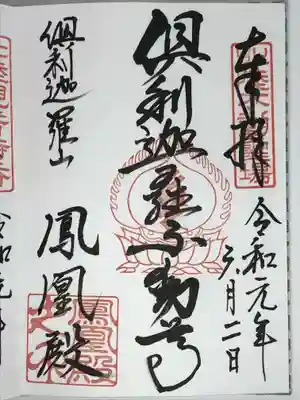 奉拝
令和元年
六月二日
倶利迦羅不動尊
倶利迦羅山
鳳凰殿